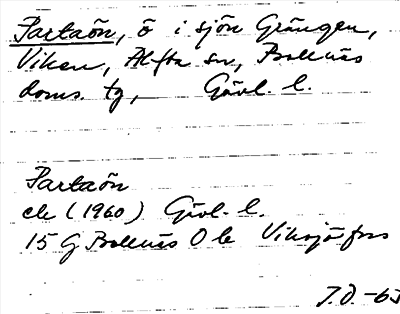 Partaön, ö i sjön Grängen,
Viken, Alfta sn, Bollnäs
doms. tg, Gävl. l.
Partaön
ek (1960) Gävl. l.
15 G Bollnäs 0 b Viksjöfors
J.Ö. -63